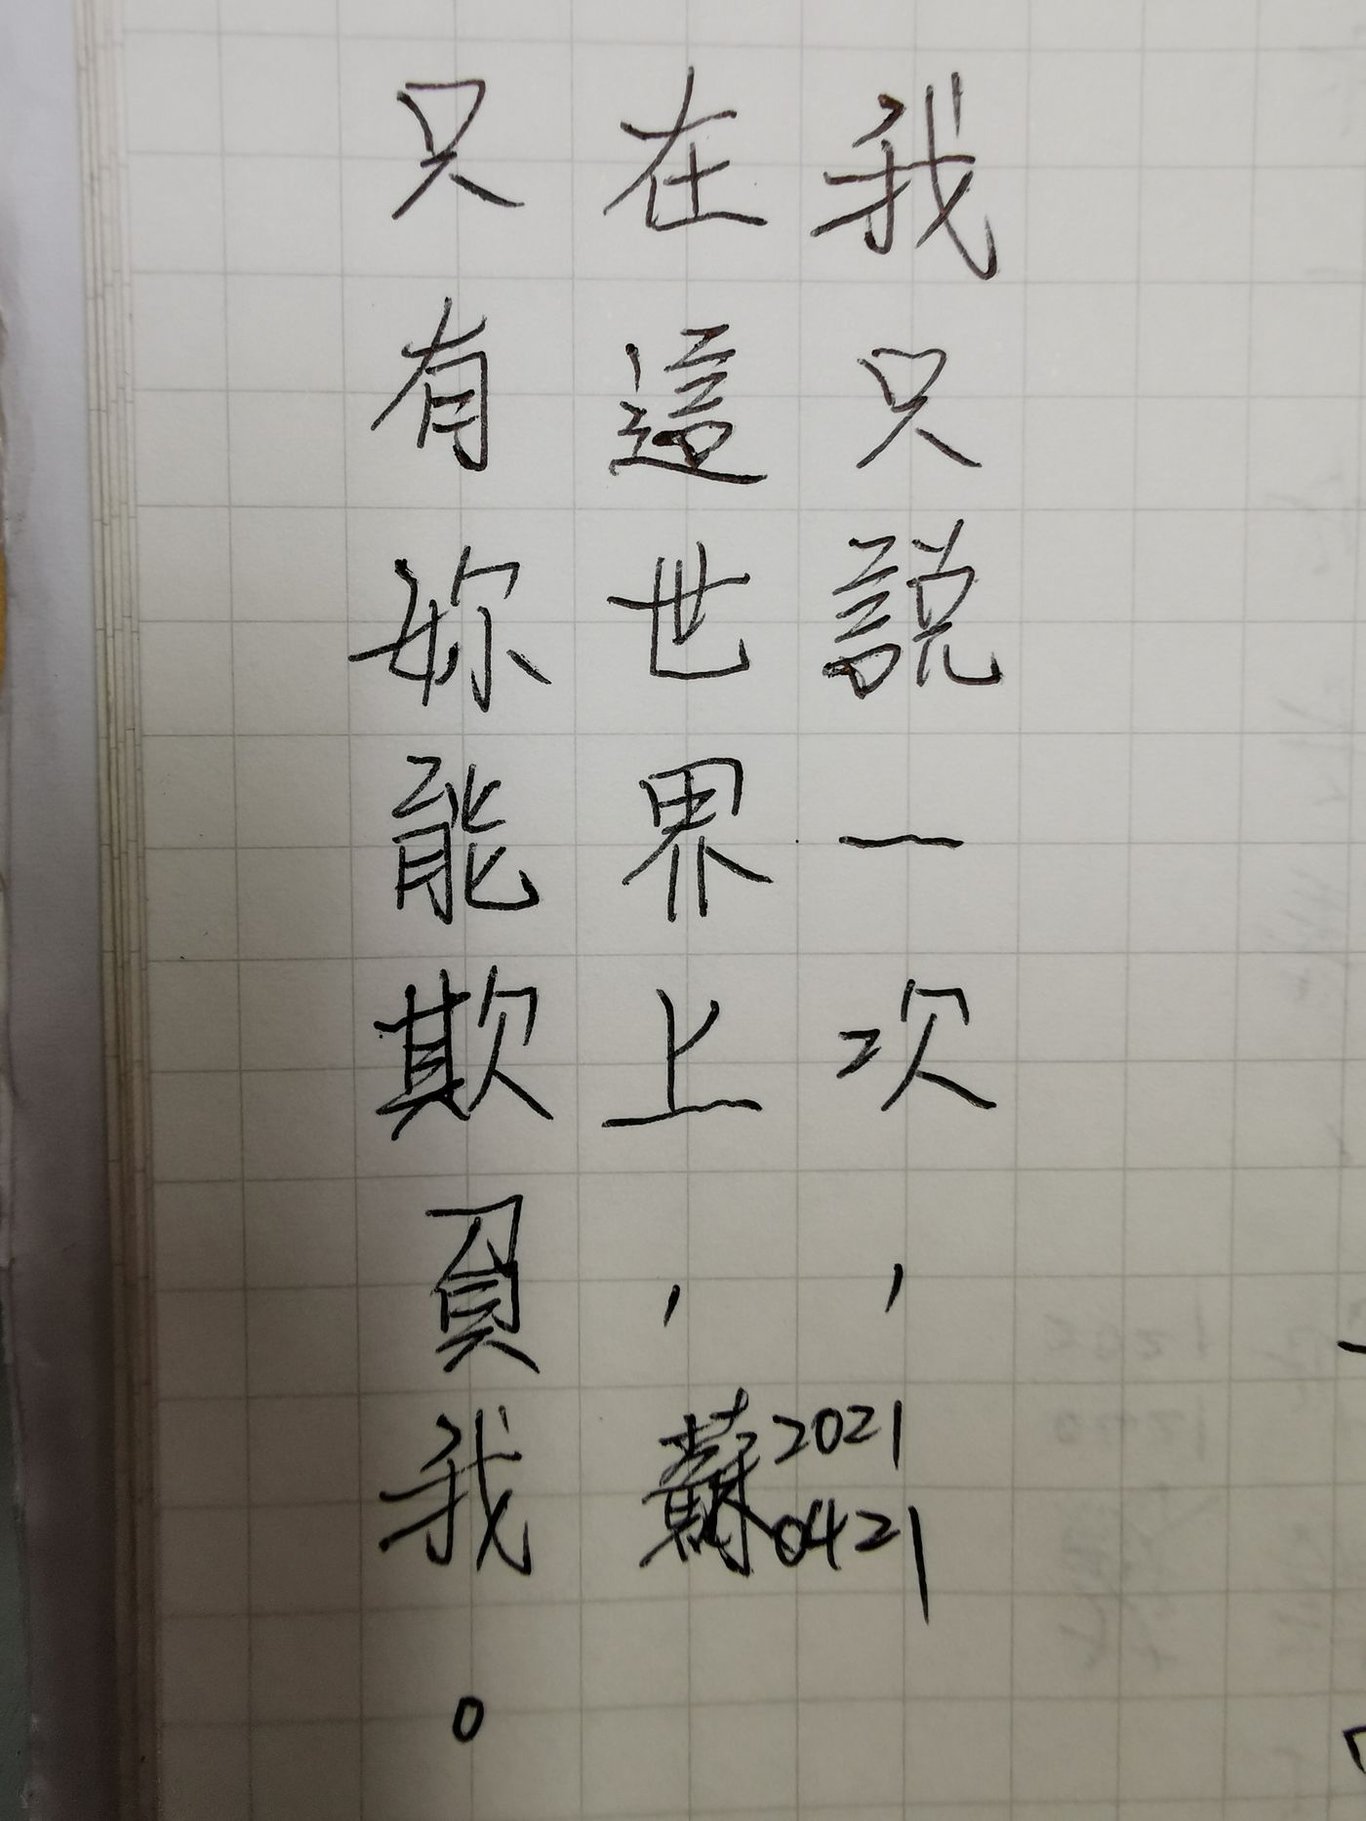 我只說一次，
在這世界上，
只有妳能欺負我。
蘇
2021
0421